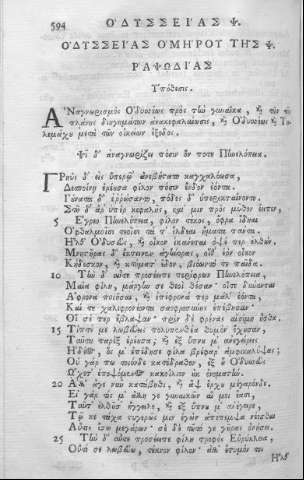 594 ὈΔΥΣΣΕΊΑΣ Ψ.
ὈΔΥΣΣΕΊΑΣ ὉΜΉΡΟΥ ΤΗ͂Σ Ψ.
ΡΑΨΩΔΊΑΣ
Ὑπόθεσις.
ἈΝαγνωρισμὸς Ὀδυσσέως πρὸς τὴν γυναῖκα, καὶ τῶν
πλάνης διηγημάτων ἀνακεφαλαίωσις, καὶ Ὀδυσσέως καὶ Τη-
λεμάχου μετὰ τῶν οἰκείων ἔξοδοι.
Ψῖ δ' ἀναγνωρίζει πόσιν ὅν ποτε Πηνελόπεια.
ΓΡηῢς δ' εἰς ὑπερῷ' ἀνεβήσατο καγχαλόωσα,
Δεσποίνῃ ἐρέουσα φίλον πόσιν ἔνδον ἐόντα.
Γούνατα δ' ἐρρώσαντο, πόδες δ' ὑπερικταίνοντο.
Στῆ δ' ἄρ' ὑπὲρ κεφαλῆς, καί μιν πρὸς μῦθον ἔειπεν,
5 Ἔγρεο Πηνελόπεια, φίλον τέκος, ὄφρα ἴδηαι
Ὀφθαλμοῖσι τεοῖσι τά τ' ἔλδεαι ἤματα πάντα.
Ἦλθ' Ὀδυσεὺς, καὶ οἶκον ἱκάνεται ὀψέ περ ἐλθών.
Μνηστῆρας δ' ἔκτεινεν ἀγήνορας, οἵ θ' ἑὸν οἶκον
Κήδεσκον, καὶ κτήματ' ἔδον, βιόωντό τε παῖδα.
10 Τὴν δ' αὖτε προσέειπε περίφρων Πηνελόπεια,
Μαῖα φίλη, μάργην σε θεοὶ θέσαν· οἵτε δύνανται
Ἄφρονα ποιῆσαι, καὶ ἐπίφρονά περ μάλ' ἐόντα,
Καί τε χαλιφρονέοντα σαοφροσύνης ἐπέβησαν·
Οἵ σέ περ ἔβλαψαν· πρὶν δὲ φρένας αἰσίμη ἦσθα.
15 Τίπτέ με λωβεύεις πολυπενθέα θυμὸν ἔχουσαν,
Ταῦτα παρὲξ ἐρέουσα, καὶ ἐξ ὕπνου μ' ἀνεγείρεις
Ἡδέος, ὅς μ' ἐπέδησε φίλα βλέφαρ' ἀμφικαλύψας;
Οὐ γάρ πω τοιόνδε κατέδραθον, ἐξ οὗ Ὀδυσσεὺς
Ὤχετ' ἐποψόμενος κακοΐλιον οὐκ ὀνομαστήν.
20 Ἀλλ' ἄγε νῦν κατάβηθι, καὶ ἂψ ἔρχευ μέγαρόνδε.
Εἰ γάρ τίς μ' ἄλλη γε γυναικῶν αἵ μοι ἔασι,
Ταῦτ' ἐλθοῦσ' ἤγγειλε, καὶ ἐξ ὕπνου μ' ἀνέγειρε,
Τῷ κε τάχα στυγερῶς μιν ἐγὼν ἀπέπεμψα νέεσθαι
Αὖτις ἔσω μέγαρον· σὲ δὲ τοῦτό γε γῆρας ὀνήσει.
25 Τὴν δ' αὖτε προσέειπε φίλη τροφὸς Εὐρύκλεια,
Οὔτι σε λωβεύω, τέκνον φίλον· ἀλλ' ἔτυμόν τοι
Ἦλθ'